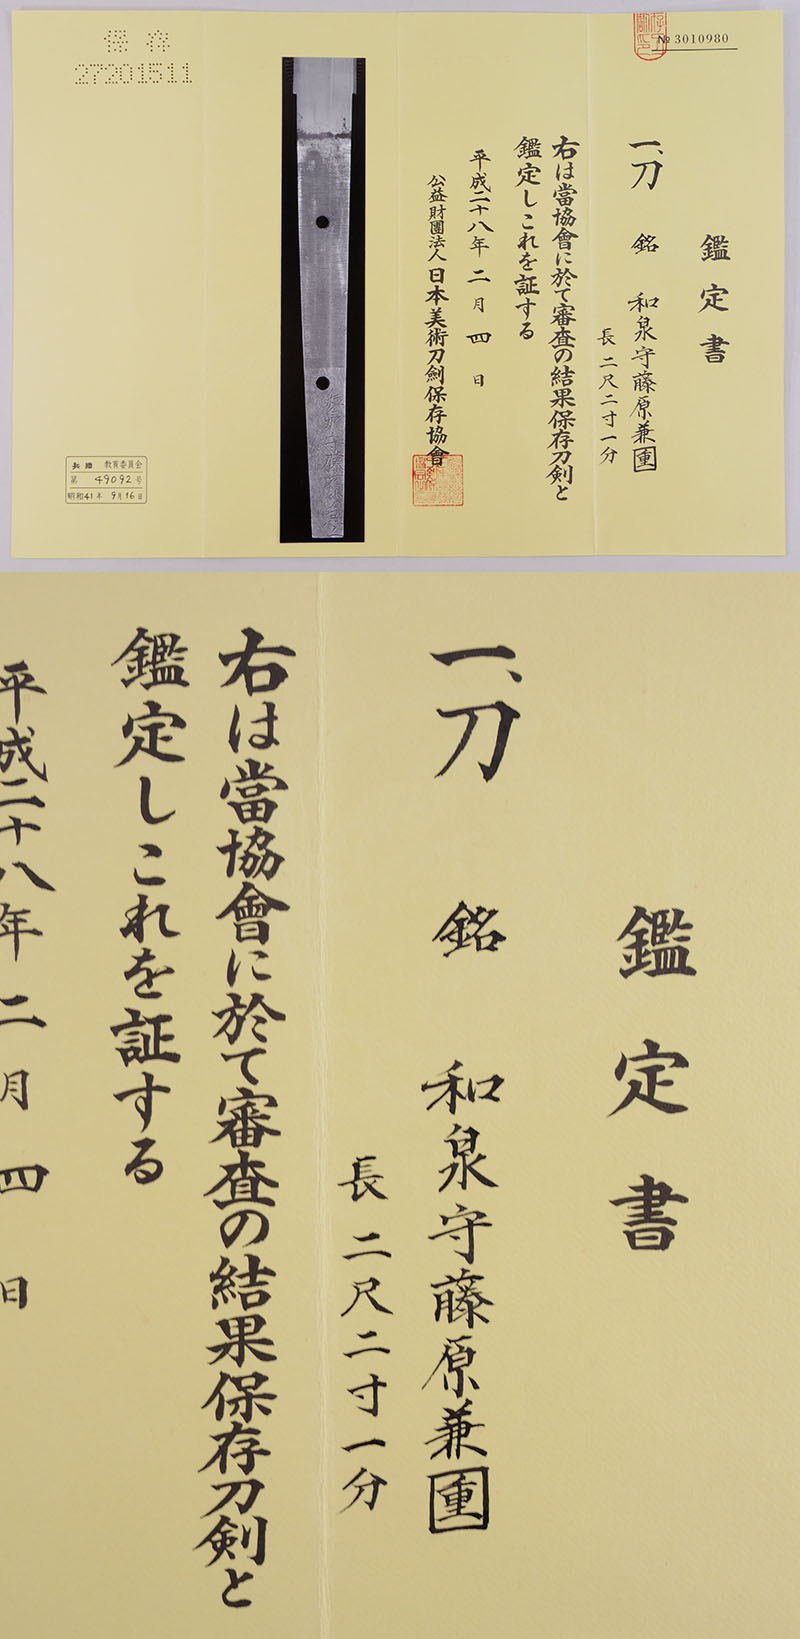 № 3010980
鑑定書
一、刀 銘 和泉守藤原兼重
長 二尺二寸一分
右は當協會に於て審査の結果保存刀剣と
鑑定しこれを証する
平成二十八年 二月 四日
公益財團法人 日本美術刀劍保存協會
保存
27201511
兵庫 教育委員会
第 49092 号
昭和41年 9月16日
鑑定書
一、刀 銘 和泉守藤原兼重
長 二尺二寸一分
右は當協會に於て審査の結果保存刀剣と
鑑定しこれを証する
平成二十八年 二月 四日